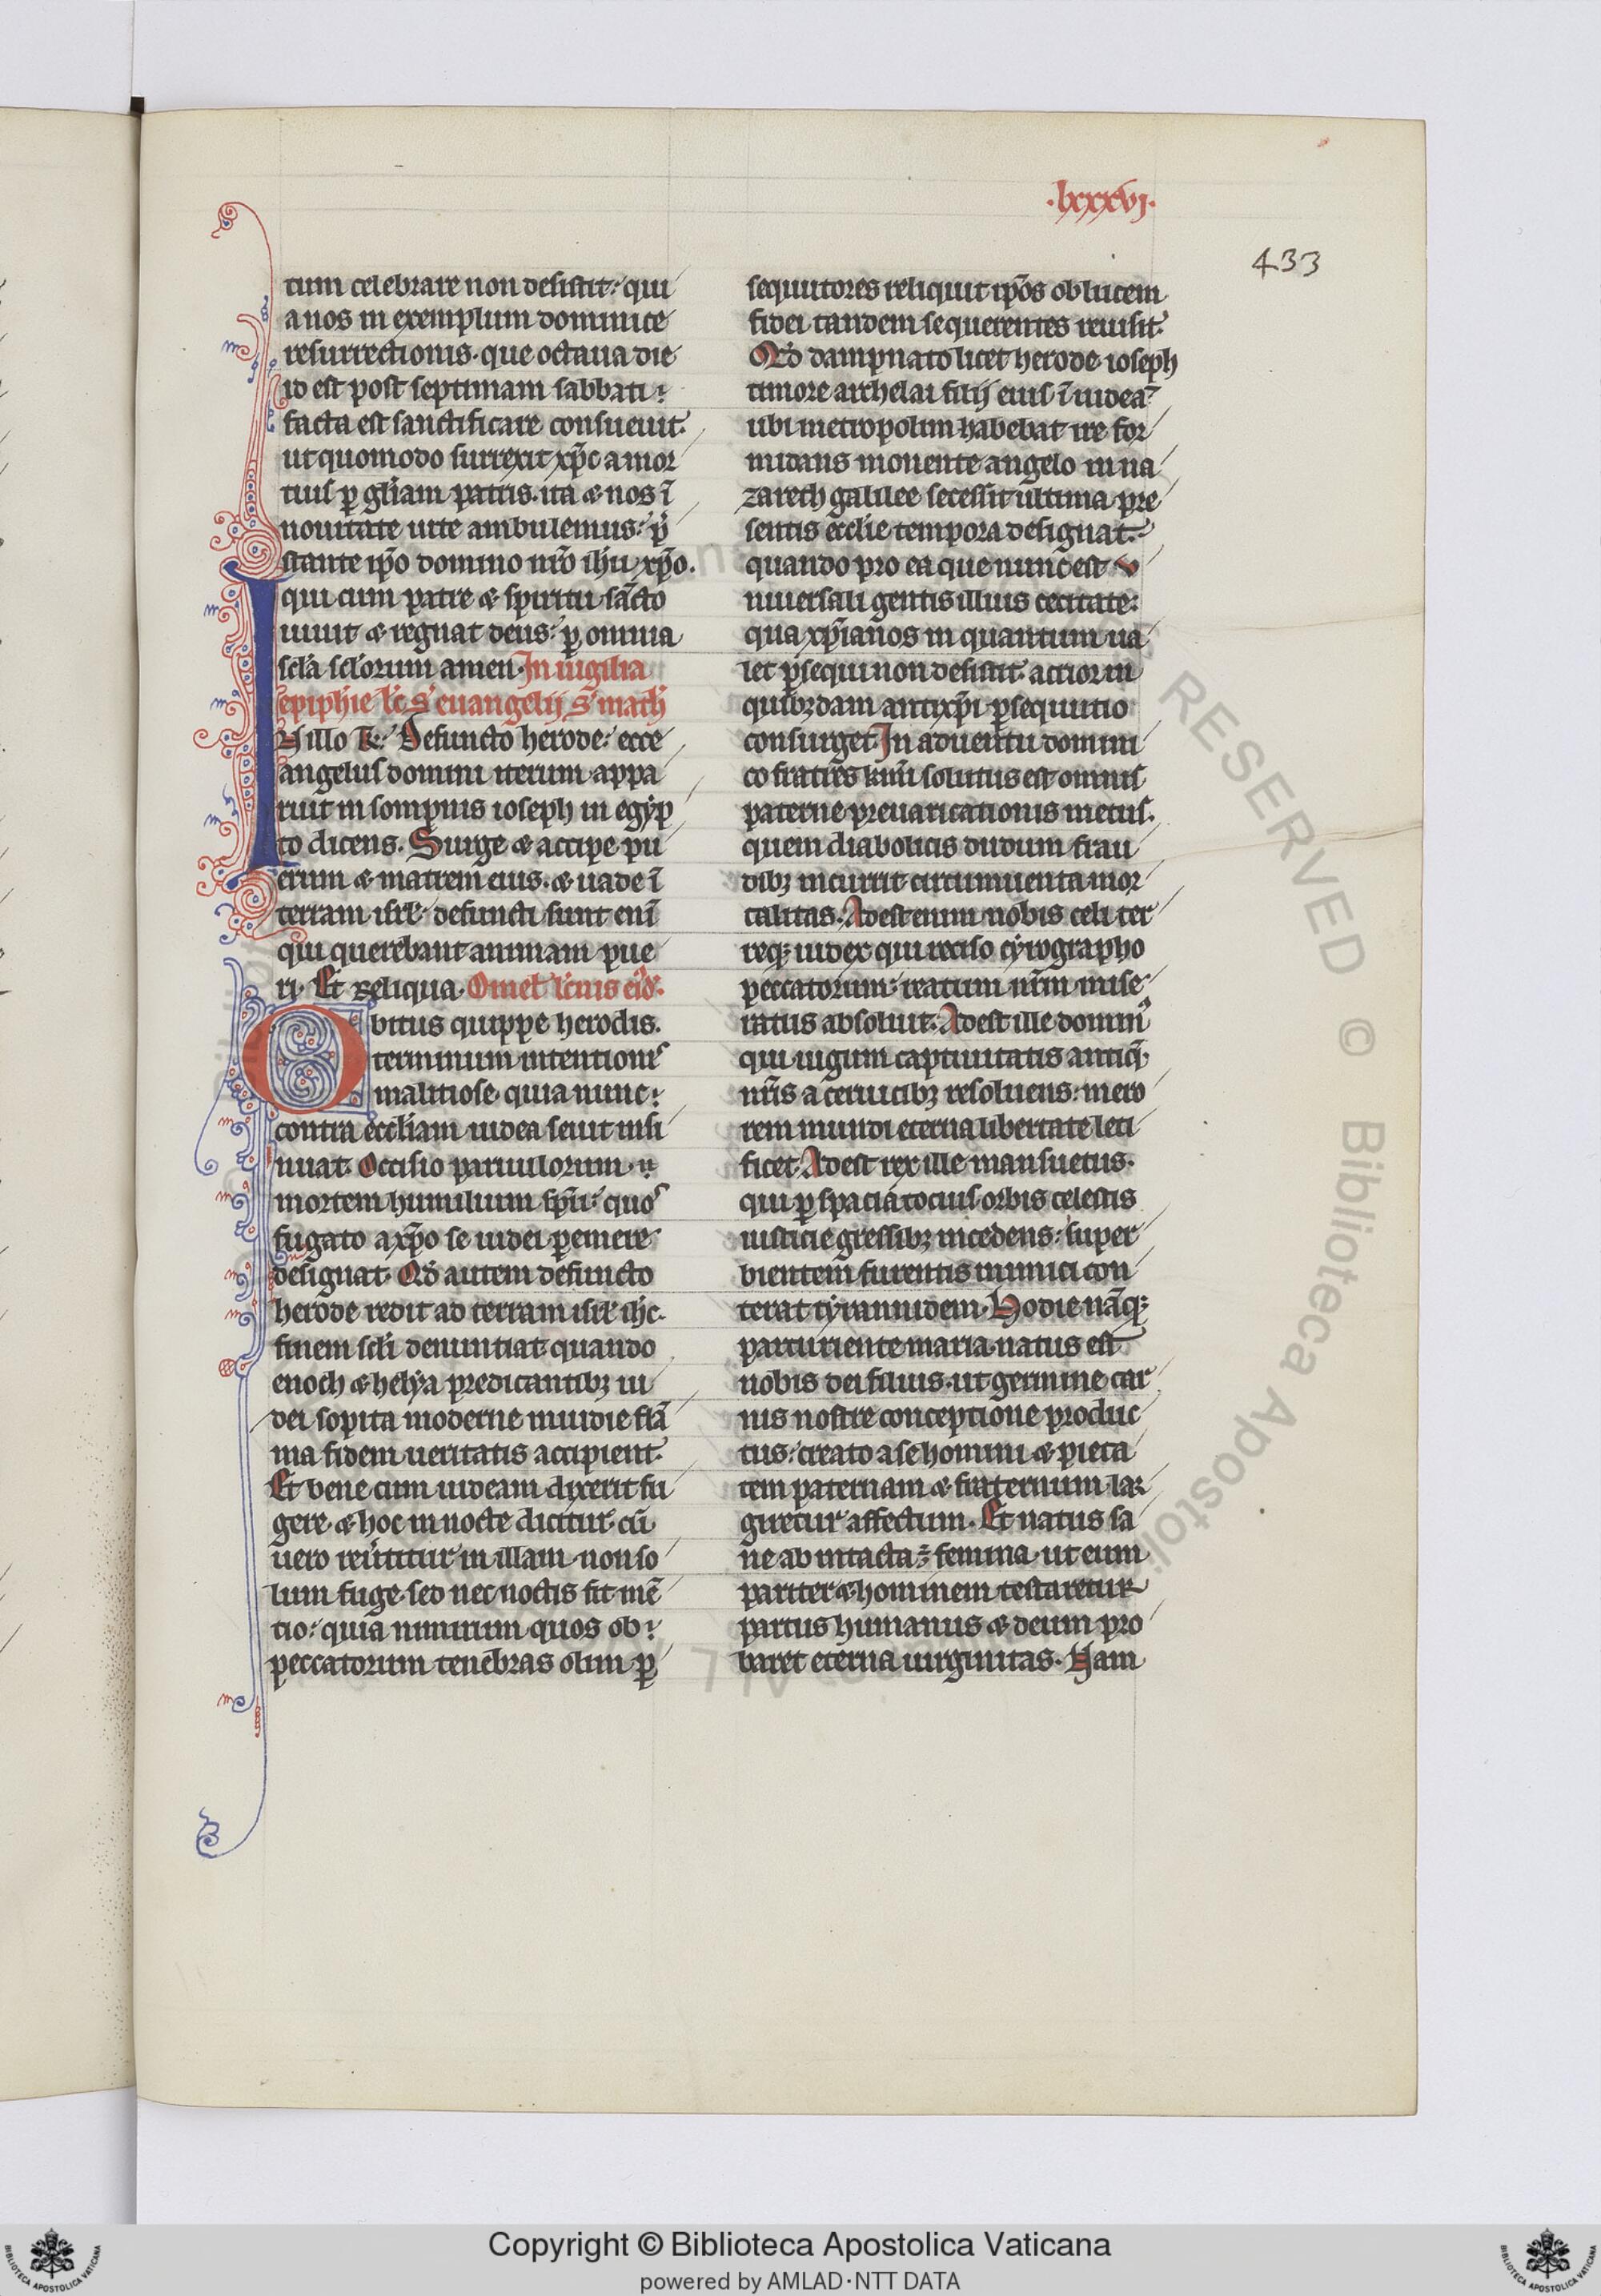 ·lxxxvj·
433
tum celebrare non desistit: qui
a nos in exemplum dominice
resurrectionis. que octaua die
id est post septimam sabbati:
facta est sanctificare consueuit.
ut quomodo surrexit xp̄c a mor
tuis ꝑ gl̄iam patris. ita ⁊ nos ī
nouitate uite ambulemus: p̄
stante ip̄o domino nr̄o ih̄u xp̄o.
qui cum patre ⁊ spiritu sc̄o
uiuit ⁊ regnat deus: ꝑ omnia
scl̄a scl̄orum amen. In uigilia
epiph̄ie lc̄ s̄ euangelij s̄ math̄
IN illo t̄: Defuncto herode: ecce
angelus domini iterum appa
ruit in sompnis ioseph in egyp
to dicens. Surge ⁊ accipe pu
erum ⁊ matrem eius. ⁊ uade ī
terram isrl̄: defuncti sunt enī
qui querebant animam pue
ri. Et reliqua. Omel̄ lc̄nis eiꝰd̄.
Obitus quippe herodis.
terminum intentionis
malitiose. quia nunc:
contra eccl̄iam iudea seuit insi
nuat. Occisio paruulorum.
mortem humilium sp̄u: quos
fugato a xp̄o se iudei ꝑemere
designat. Qd̄ autem defuncto
herode redit ad terram isrl̄ ih̄c.
finem scl̄i denuntiat: quando
enoch ⁊ helya predicantibꝫ iu
dei sopita moderne inuidie flā
ma fidem ueritatis accipient.
Et bene cum iudeam dixerit fu
gere. ⁊ hoc in nocte dicitur: cū
uero reūtitur in illam. non so
lum fuge. sed nec noctis fit mē
tio: quia nimirum quos ob:
peccatorum tenebras olim ꝑ
sequutores reliquit ip̄os ob lucem
fidei tandem se querentes reuisit.
Qd̄ dampnato licet herode ioseph
timore archelai filij eius ī iudea
ubi metropolim habebat ire for
midans monente angelo in na
zareth galilee secessit ultima pre
sentis eccl̄ie tempora designat:
quando pro ea que nunc est u
niuersali gentis illius cecitate:
qua xp̄ianos in quantum ua
let ꝑsequi non desistit. acrior in
quibꝫdam antixp̄i ꝑsequutio
consurget. In aduentu domini
co fratres kmi solutus est omnis
paterne preuaricationis metus.
quem diabolicis dudum frau
dibꝫ incurrit circumuenta mor
talitas. Adest enim nobis celi ter
reqꝫ iudex qui reciso cyrographo
peccatorum: reatum nr̄m mise
ratus absoluit. Adest ille dominꝰ
qui iugum captiuitatis antiq̄.
nr̄is a ceruicibꝫ resoluens: mero
rem mundi eterna libertate leti
ficet. Adest rex ille mansuetus.
qui ꝑ spacia tocius orbis celestis
iusticie gressibꝫ incedens: super
bientem furentis inimici con
terat tyrannidem. Hodie nāqꝫ
parturiente maria. natus est
nobis dei filius. ut germine car
nis nostre conceptione produc
tus: creato a se homini ⁊ pieta
tem paternam ⁊ fraternum lar
giretur affectum. Et natus sa
ne ab intacta femina. ut eum
pariter ⁊ hominem testaretur
partus humanus ⁊ deum pro
baret eterna uirginitas. Nam
Copyright © Biblioteca Apostolica Vaticana
powered by AMLAD·NTT DATA